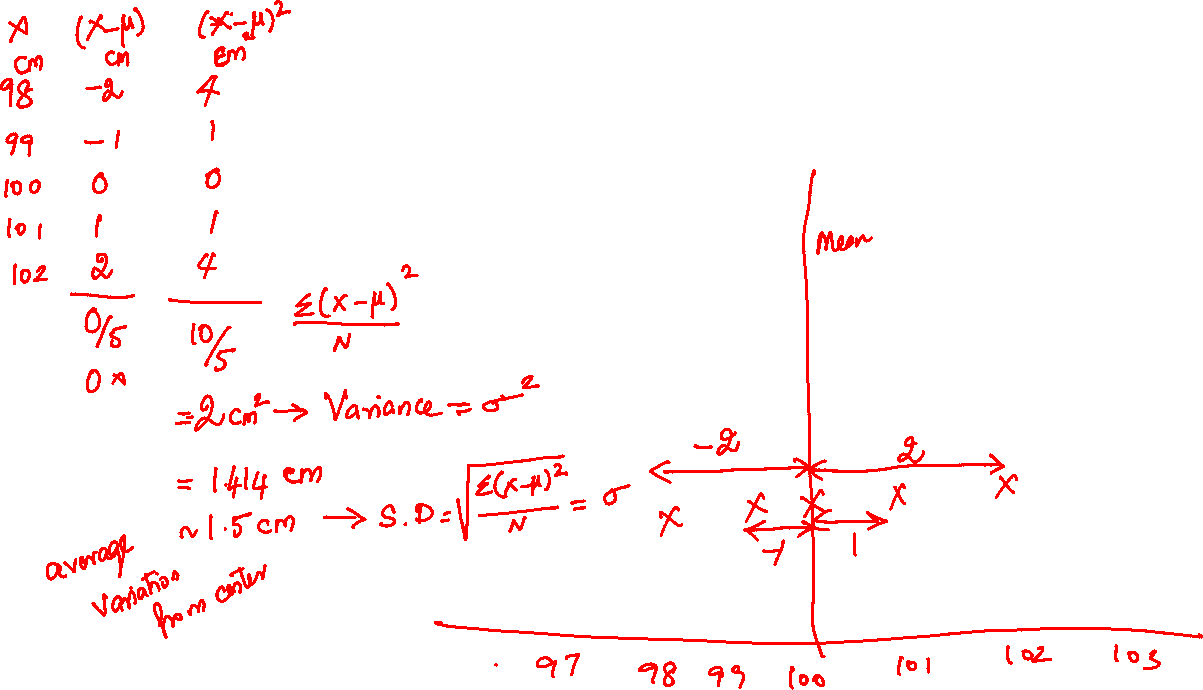 x (x-μ) (x-μ)²
cm cm cm²
98 -2 4
99 -1 1
100 0 0
101 1 1
102 2 4
0/5 10/5 Σ(x-μ)²/N
0 x
= 2 cm² → Variance = σ²
= 1.414 cm
~ 1.5 cm → S.D = √(Σ(x-μ)²/N) = σ
average
variation
from center
Mean
-2 2
x x x x x
-1 1
97 98 99 100 101 102 103